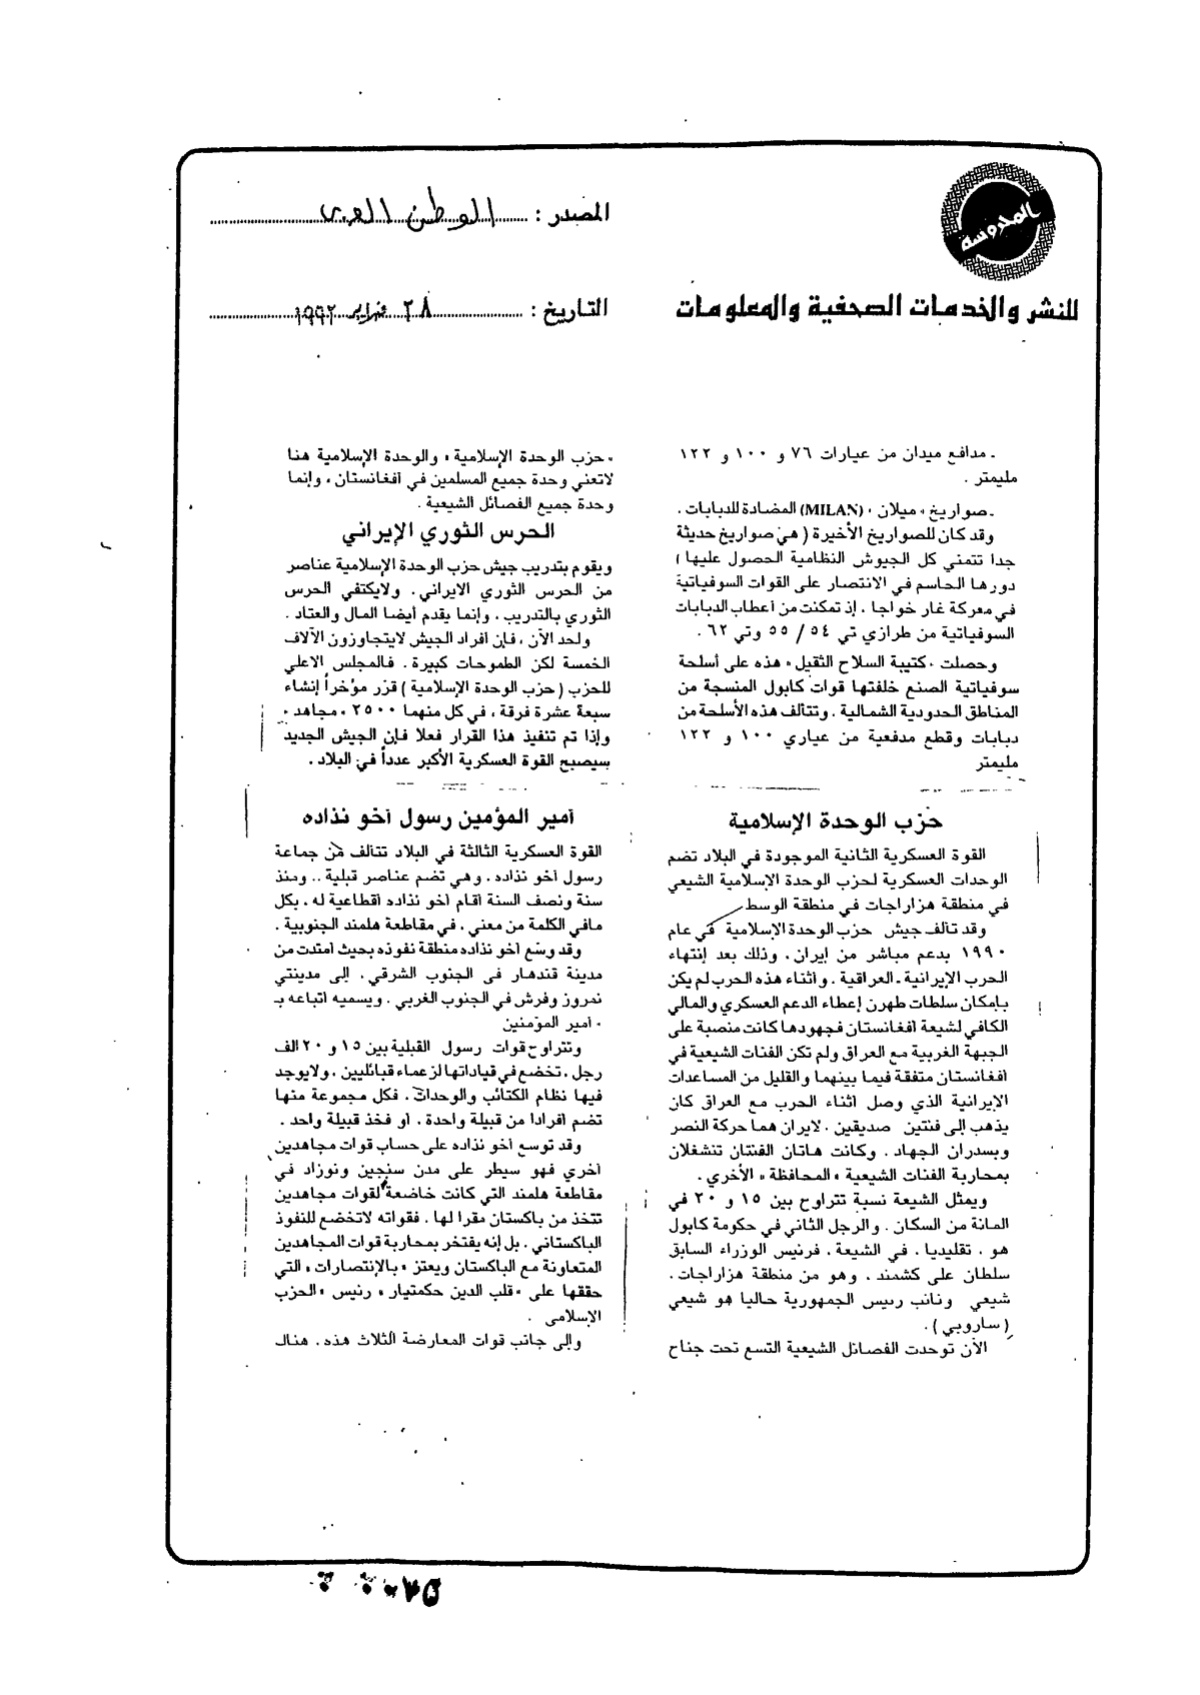 المحروسة
للنشر والخدمات الصحفية والمعلومات
المصدر : الوطن العربى
التاريخ : ٢٨ فبراير ١٩٩٢
ـ مدافع ميدان من عيارات ٧٦ و ١٠٠ و ١٢٢
مليمتر .
ـ صواريخ « ميلان » (MILAN) المضادة للدبابات .
وقد كان للصواريخ الأخيرة ( هي صواريخ حديثة
جدا تتمنى كل الجيوش النظامية الحصول عليها )
دورها الحاسم في الانتصار على القوات السوفياتية
في معركة غار خواجا . إذ تمكنت من أعطاب الدبابات
السوفياتية من طرازي تي ٥٤ / ٥٥ وتي ٦٢ .
وحصلت « كتيبة السلاح الثقيل » هذه على أسلحة
سوفياتية الصنع خلفتها قوات كابول المنسحبة من
المناطق الحدودية الشمالية . وتتألف هذه الأسلحة من
دبابات وقطع مدفعية من عياري ١٠٠ و ١٢٢
مليمتر
حزب الوحدة الإسلامية
القوة العسكرية الثانية الموجودة في البلاد تضم
الوحدات العسكرية لحزب الوحدة الإسلامية الشيعي
في منطقة هزاراجات في منطقة الوسط
وقد تألف جيش حزب الوحدة الإسلامية في عام
١٩٩٠ بدعم مباشر من إيران . وذلك بعد إنتهاء
الحرب الإيرانية ـ العراقية . وأثناء هذه الحرب لم يكن
بإمكان سلطات طهرن إعطاء الدعم العسكري والمالي
الكافي لشيعة أفغانستان فجهودها كانت منصبة على
الجبهة الغربية مع العراق ولم تكن الفئات الشيعية في
أفغانستان متفقة فيما بينهما والقليل من المساعدات
الإيرانية الذي وصل أثناء الحرب مع العراق كان
يذهب إلى فئتين صديقين . لايران هما حركة النصر
وبسدران الجهاد . وكانت هاتان الفئتان تنشغلان
بمحاربة الفئات الشيعية « المحافظة » الأخري .
ويمثل الشيعة نسبة تتراوح بين ١٥ و ٢٠ في
المائة من السكان . والرجل الثاني في حكومة كابول
هو . تقليديا . في الشيعة . فرئيس الوزراء السابق
سلطان على كشمند . وهو من منطقة هزاراجات .
شيعي ونائب رئيس الجمهورية حاليا هو شيعي
( ساروبي ) .
الآن توحدت الفصائل الشيعية التسع تحت جناح
« حزب الوحدة الإسلامية » والوحدة الإسلامية هنا
لاتعني وحدة جميع المسلمين في أفغانستان ، وإنما
وحدة جميع الفصائل الشيعية .
الحرس الثوري الإيراني
ويقوم بتدريب جيش حزب الوحدة الإسلامية عناصر
من الحرس الثوري الايراني . ولايكتفي الحرس
الثوري بالتدريب ، وإنما يقدم أيضا المال والعتاد .
ولحد الآن ، فإن أفراد الجيش لايتجاوزون الآلاف
الخمسة لكن الطموحات كبيرة . فالمجلس الاعلي
للحزب ( حزب الوحدة الإسلامية ) قرّر مؤخراً إنشاء
سبعة عشرة فرقة ، في كل منهما ٢٥٠٠ « مجاهد »
وإذا تم تنفيذ هذا القرار فعلا فإن الجيش الجديد
سيصبح القوة العسكرية الأكبر عدداً في البلاد .
أمير المؤمين رسول أخو نذاده
القوة العسكرية الثالثة في البلاد تتألف من جماعة
رسول أخو نذاده . وهي تضم عناصر قبلية .. ومنذ
سنة ونصف السنة أقام أخو نذاده أقطاعية له . بكل
مافي الكلمة من معني . في مقاطعة هلمند الجنوبية .
وقد وسّع أخو نذاده منطقة نفوذه بحيث أمتدت من
مدينة قندهار فى الجنوب الشرقي . إلى مدينتي
نمروز وفرش في الجنوب الغربي . ويسميه أتباعه بـ
« أمير المؤمنين
وتتراوح قوات رسول القبلية بين ١٥ و ٢٠ الف
رجل . تخضع في قياداتها لزعماء قبائليين . ولايوجد
فيها نظام الكتائب والوحدات . فكل مجموعة منها
تضم أفرادا من قبيلة واحدة . أو فخذ قبيلة واحد .
وقد توسع أخو نذاده على حساب قوات مجاهدين
أخري فهو سيطر على مدن سنجين ونوزاد في
مقاطعة هلمند التي كانت خاضعة لقوات مجاهدين
تتخذ من باكستان مقرا لها . فقواته لاتخضع للنفوذ
الباكستاني . بل إنه يفتخر بمحاربة قوات المجاهدين
المتعاونة مع الباكستان ويعتز « بالإنتصارات » التي
حققها على « قلب الدين حكمتيار » رئيس « الحزب
الإسلامى .
وإلى جانب قوات المعارضة الثلاث هذه . هناك